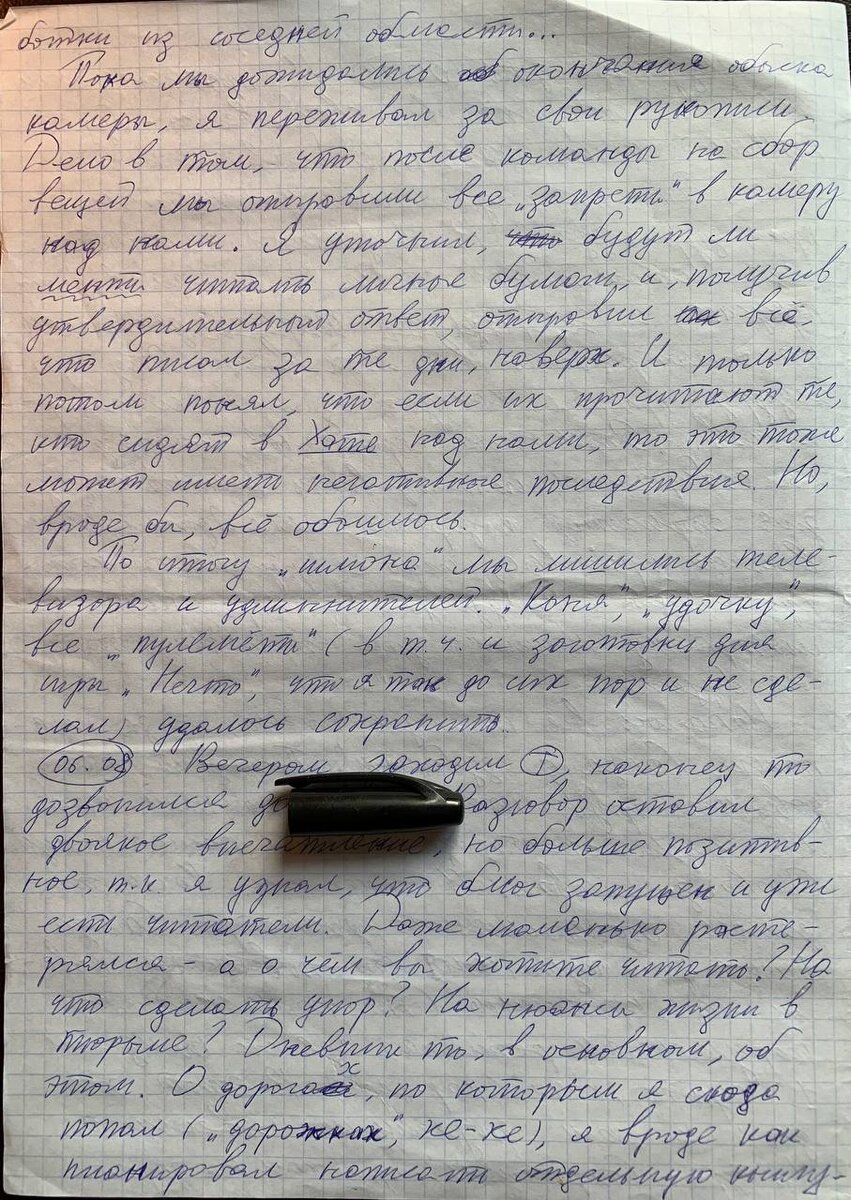 ботки из соседней области...
Пока мы дожидались окончания обыска
камеры, я переживал за свои рукописи.
Дело в том, что после команды на сбор
вещей мы отправили все "запреты" в камеру
над нами. Я уточнил, что будут ли
менты читать личные бумаги, и, получив
утвердительный ответ, отправил всё,
что писал за те дни, наверх. И только
потом понял, что если их прочитают те,
кто сидят в Хате над нами, то это тоже
может иметь негативные последствия. Но,
вроде бы, всё обошлось.
По итогу "шмона" мы лишились теле-
визора и удлиннителей. "Коня", "удочку",
все "пулемёты" (в т.ч. и заготовки для
игры "Нечто", что я так до сих пор и не сде-
лал) удалось сохранить.
06.08 Вечером заходим Т, наконец то
дозвонился до Разговор оставил
двоякое впечатление, но больше позитив-
ное, т.к. я узнал, что блог запущен и уже
есть читатели. Даже маленько расте-
рялся - а о чём вы хотите читать? На
что сделать упор? На нюансы жизни в
тюрьме? Дневник то, в основном, об
этом. О дорогах, по которым я сюда
попал ("дорожках", хе-хе), я вроде как
планировал написать отдельную книгу-